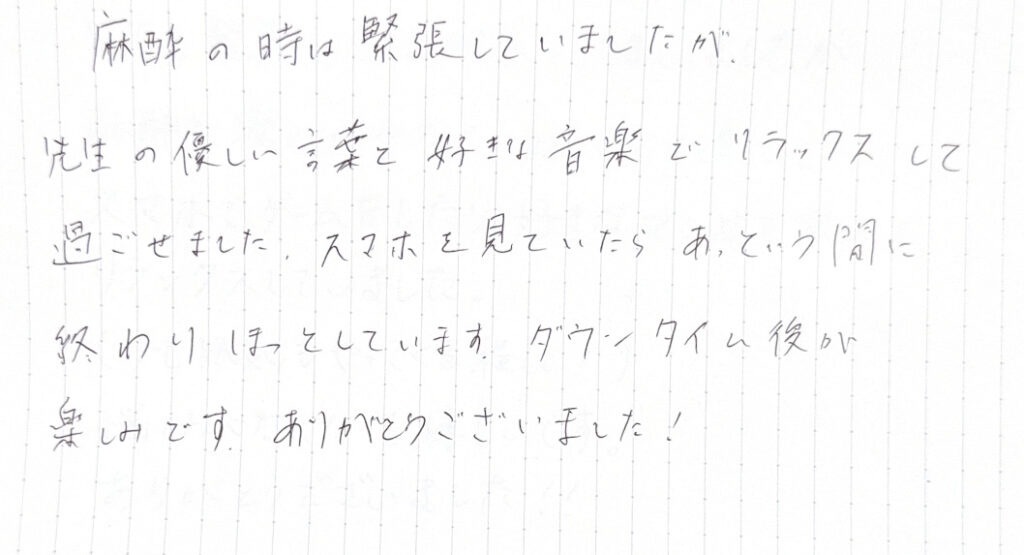 麻酔の時は緊張していましたが、
先生の優しい言葉と好きな音楽でリラックスして
過ごせました。スマホを見ていたらあっという間に
終わりほっとしています。ダウンタイム後が
楽しみです。ありがとうございました!